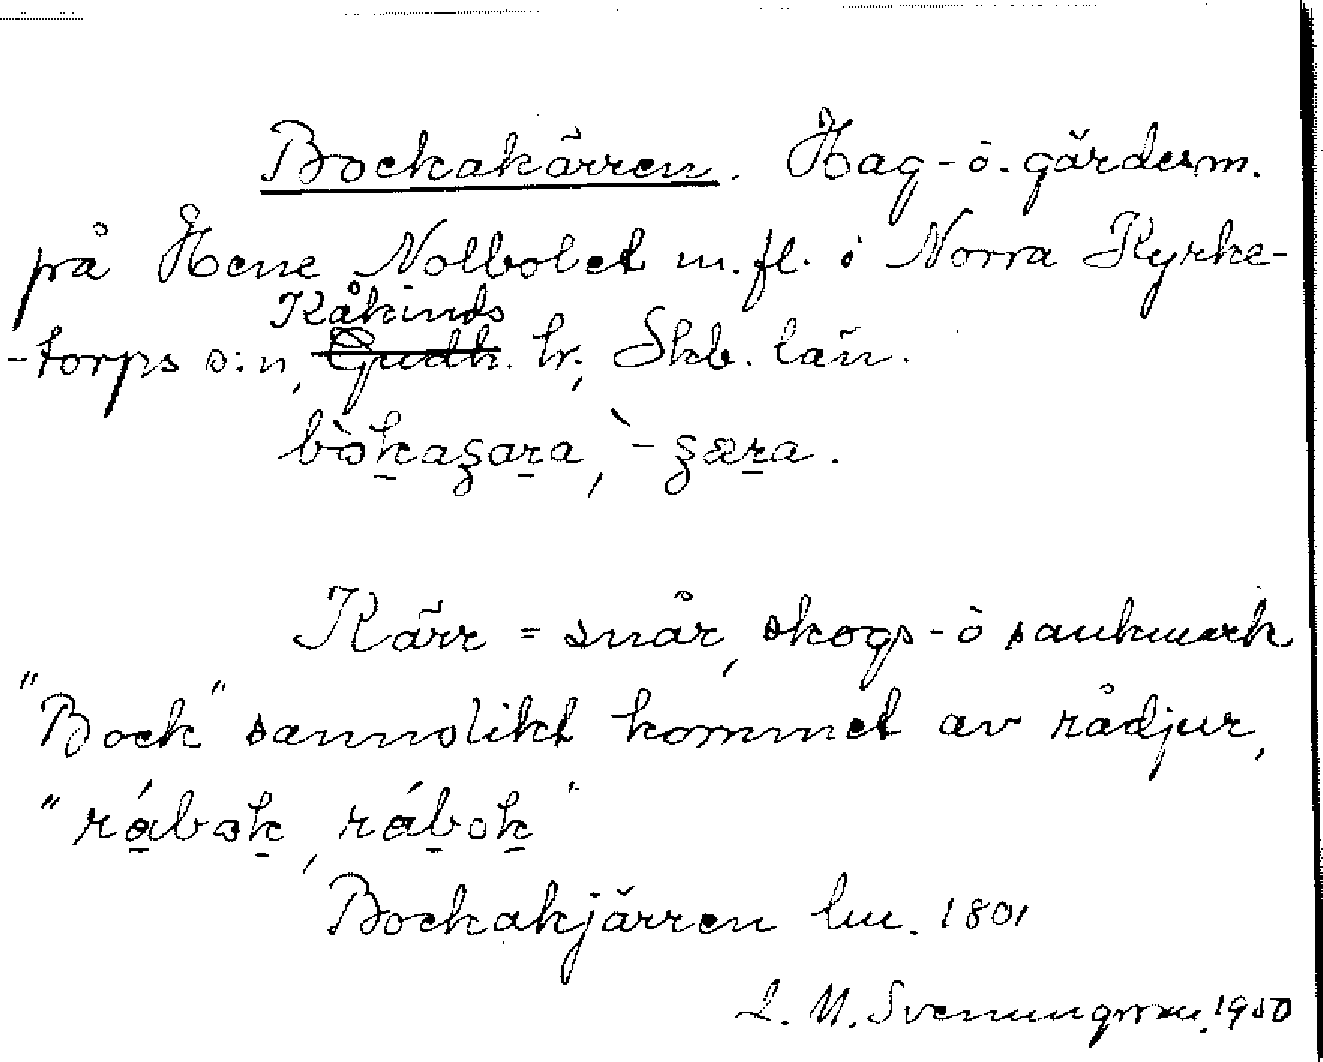 Bockakärren. Hag- o. gärdesm.
på Hene Nolbolet m.fl. i Norra Kyrke-
Kåkinds
-torps s:n, Gudh. hr., Skb. län.
bòkaʒara, `-ʒæra.
Kärr = snår, skogs- o sankmark
"Bock" sannolikt kommet av rådjur,
"rábok, rábok"
Bockakjärren lm. 1801
L. M. Svenungsson. 1950